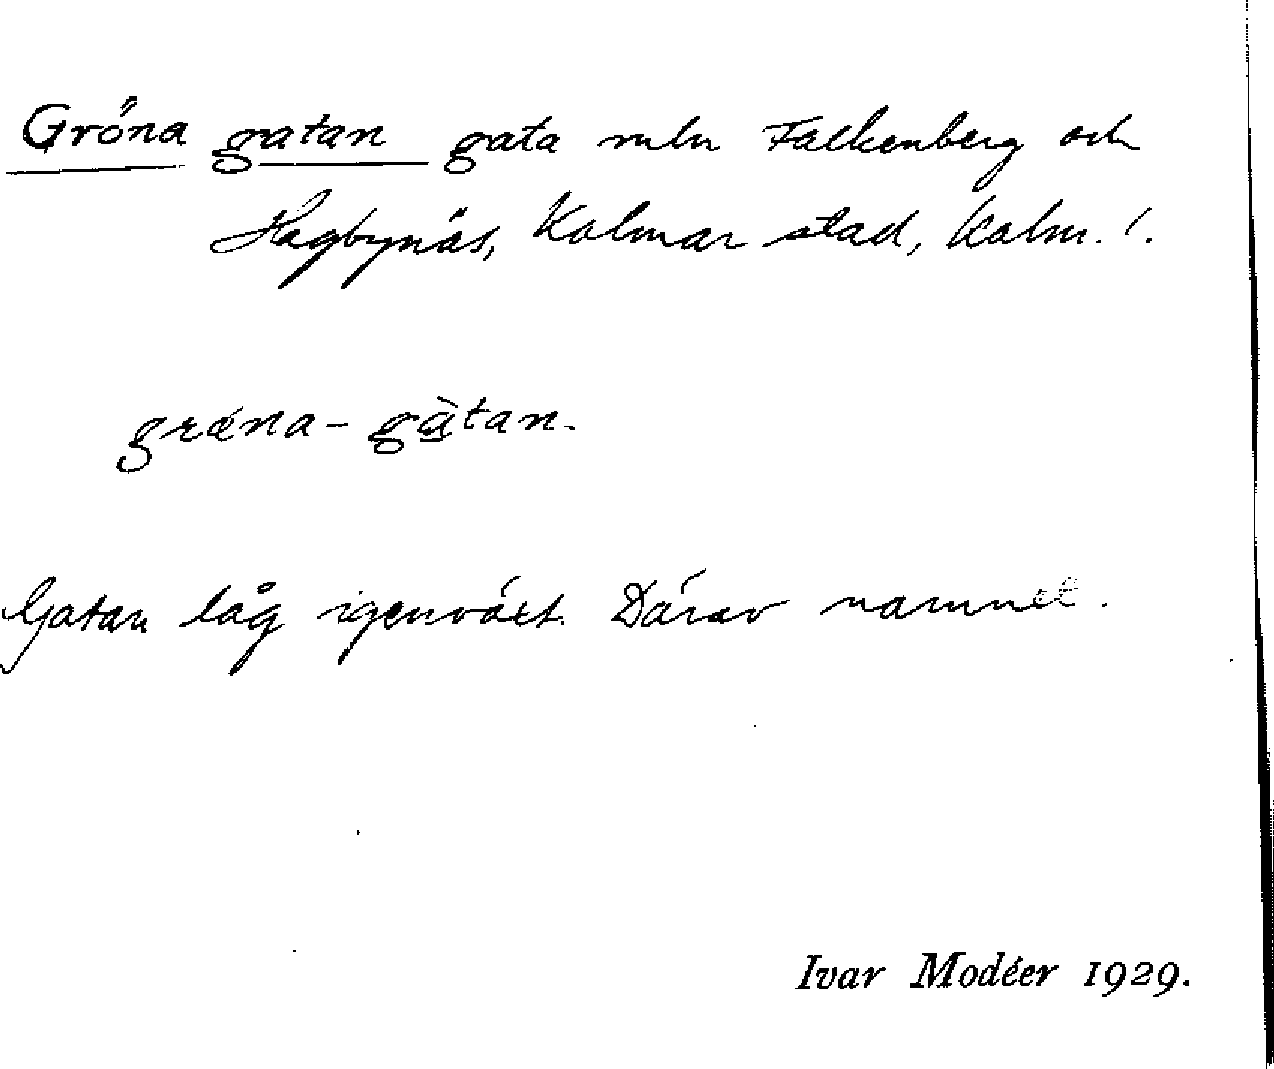 Gröna gatan gata mln Falkenberg och
Hagbynäs, Kalmar stad, Kalm. l.
græ̀na-gàtan.
Gatan låg igenväxt. Därav namnet.
Ivar Modéer 1929.